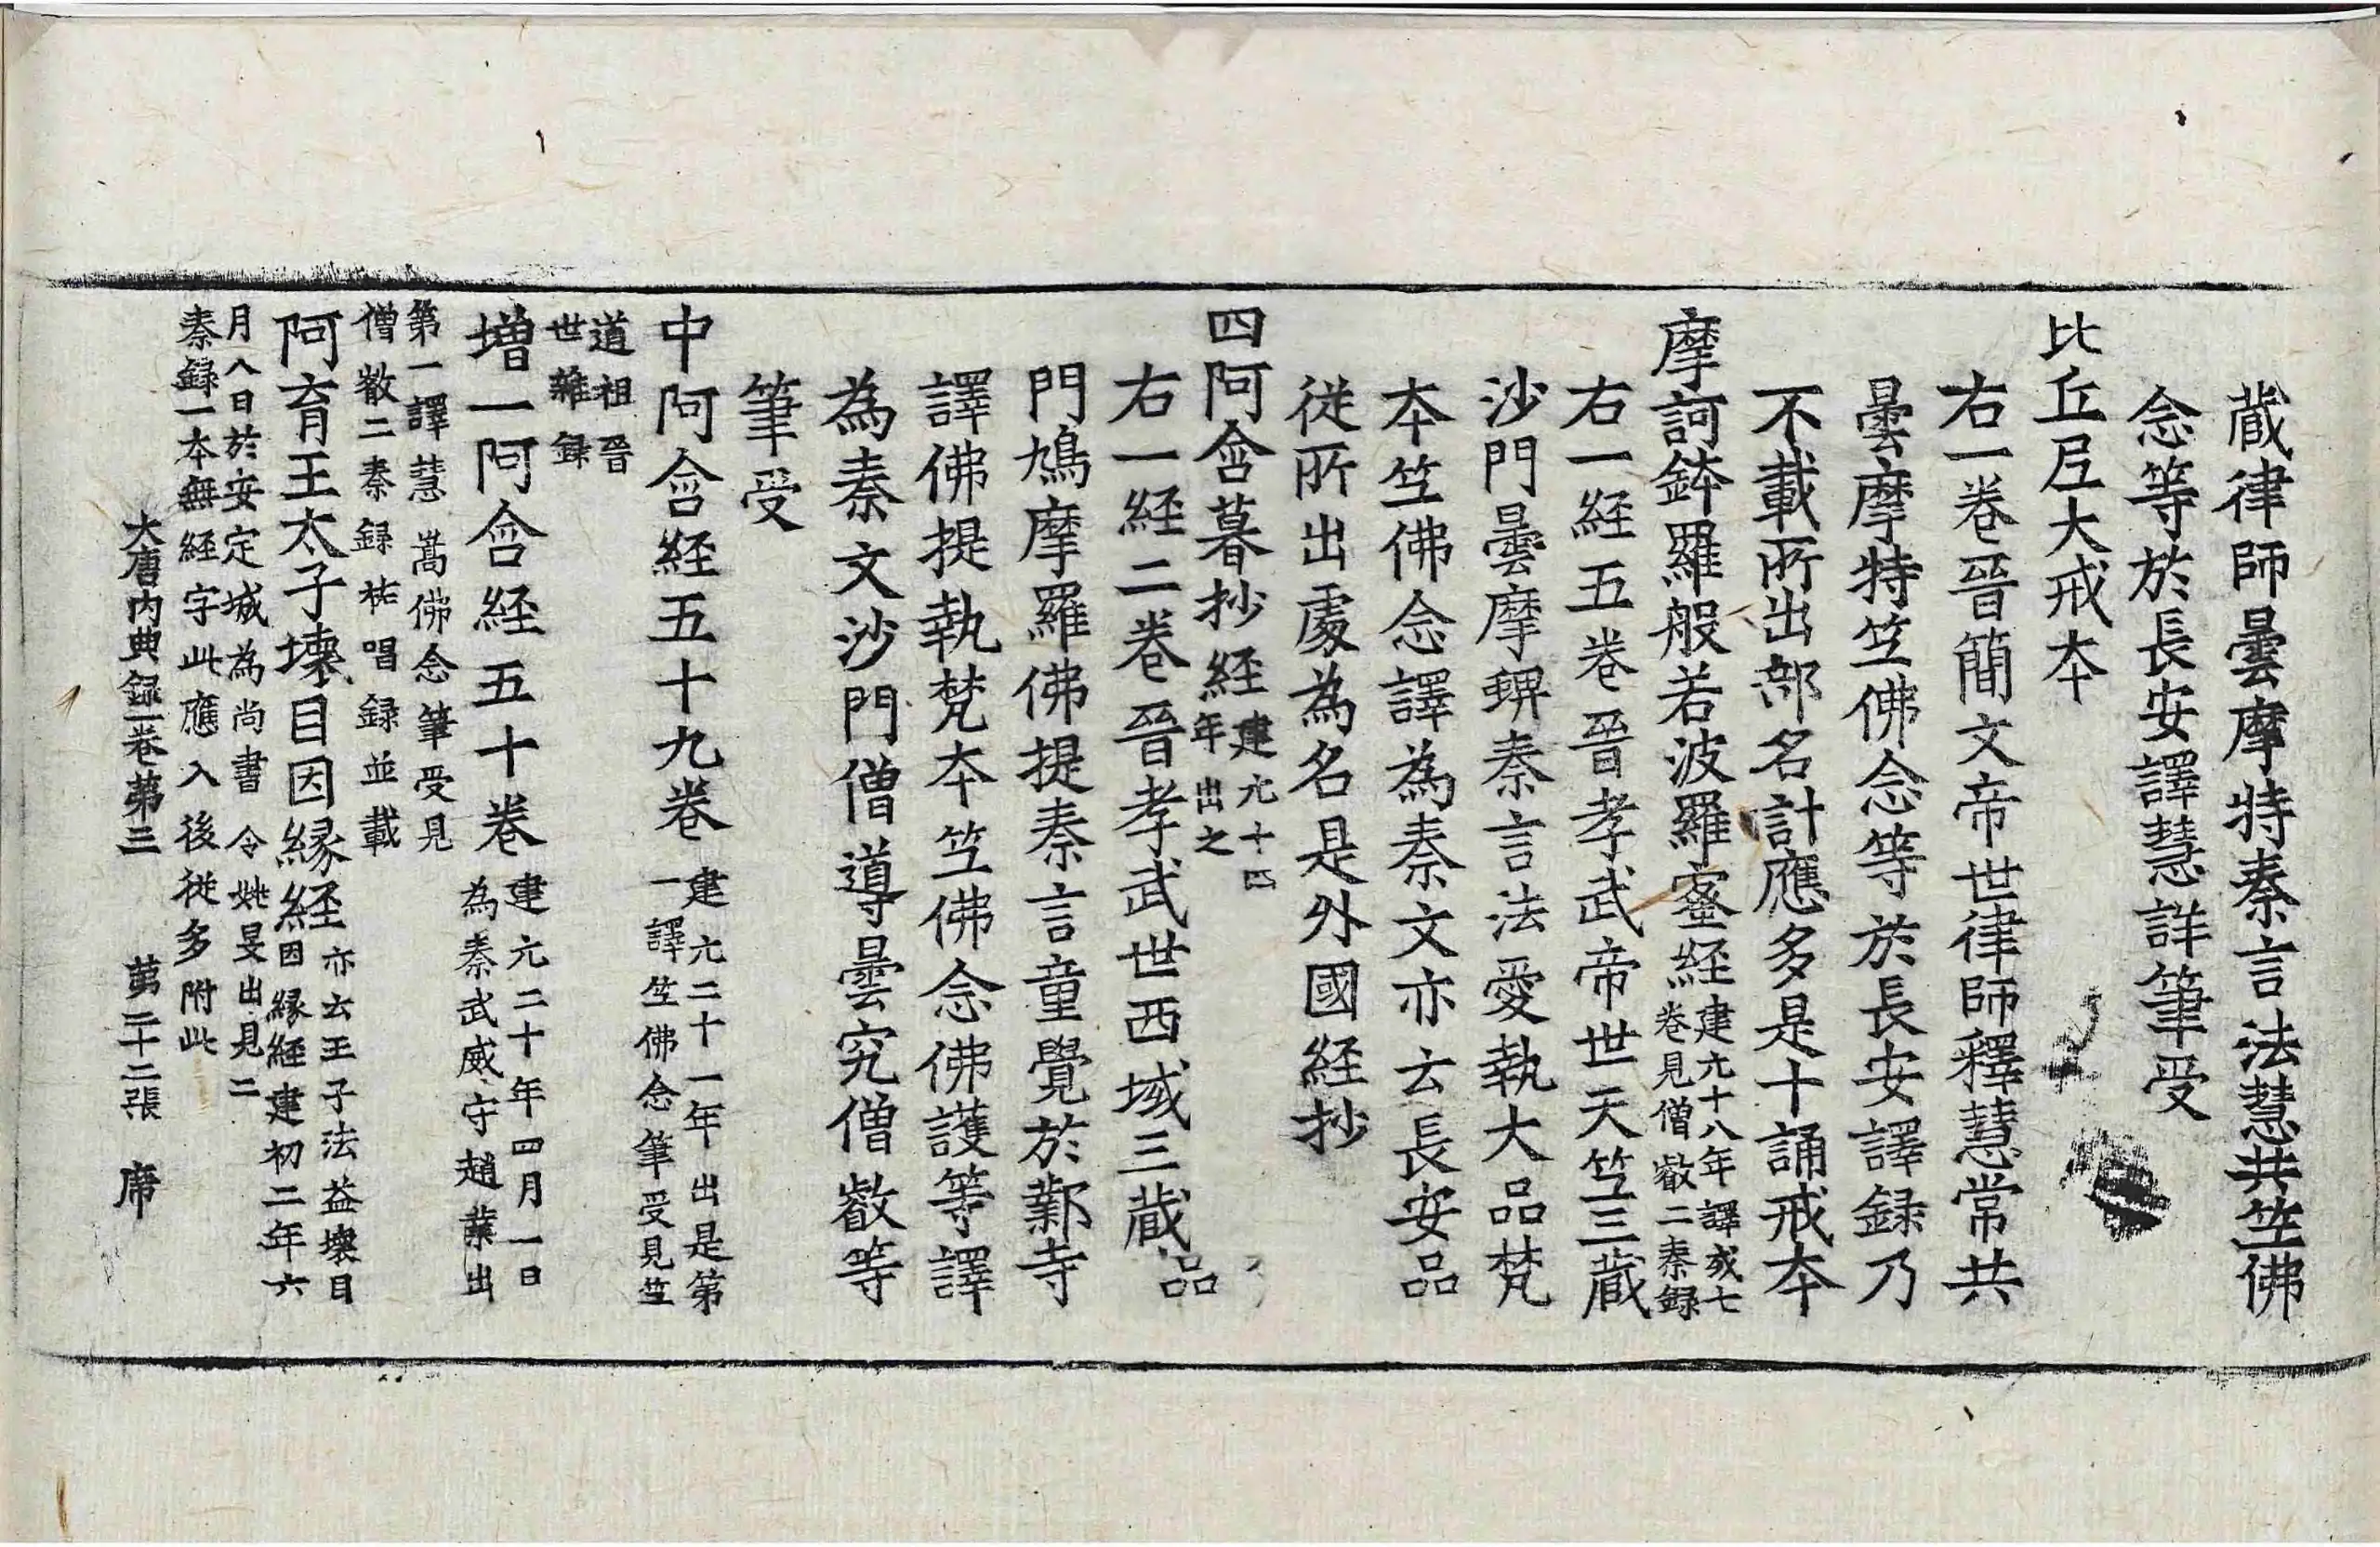 蔵律師曇摩特秦言法慧共笁佛
念等於長安譯慧詳筆受
比丘尼大戒本
右一卷晉簡文帝世律師釋慧常共
曇摩特笁佛念等於長安譯録乃
不載所出部名計應多是十誦戒本
摩訶鉢羅般若波羅蜜経
建元十八年譯成七
卷見僧叡二秦録
右一経五卷晉孝武帝世天笁三蔵
沙門曇摩蜱秦言法愛執大品梵
本笁佛念譯為秦文亦云長安品
従所出處為名是外國経抄
四阿含暮抄経
建元十四
年出之
右一経二卷晉孝武世西域三蔵
門鳩摩羅佛提秦言童覺於鄴寺
譯佛提執梵本笁佛念佛護等譯
為秦文沙門僧導曇究僧叡等
筆受
中阿含経五十九卷
建元二十一年出是第
一譯笁佛念筆受見笁
道祖晉
世雜録
増一阿含経五十卷
建元二十年四月一日
為秦武威守趙業出
第一譯慧嵩佛念筆受見
僧叡二秦録祐唱録並載
阿育王太子壊目因縁経
亦云王子法益壊目
因縁経建初二年六
月八日於安定城為尚書令姚旻出見二
秦録一本無経字此應入後従多附此
大唐内典録卷第三 第二十二張 席